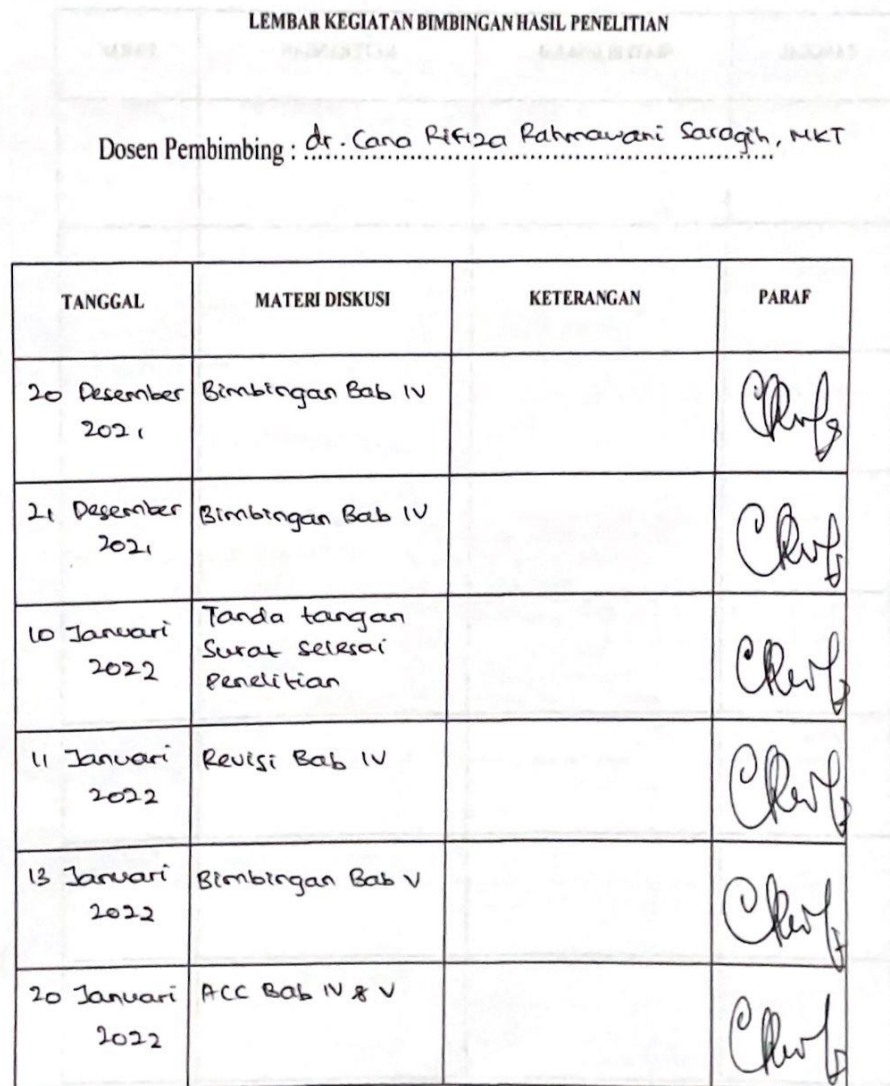 LEMBAR KEGIATAN BIMBINGAN HASIL PENELITIAN
Dosen Pembimbing : dr. Cana Rifiza Rahmawani Saragih, MKT
TANGGAL MATERI DISKUSI KETERANGAN PARAF
20 Desember Bimbingan Bab IV
2021
21 Desember Bimbingan Bab IV
2021
10 Januari Tanda tangan
2022 Surat selesai
Penelitian
11 Januari Revisi Bab IV
2022
13 Januari Bimbingan Bab V
2022
20 Januari ACC Bab IV & V
2022